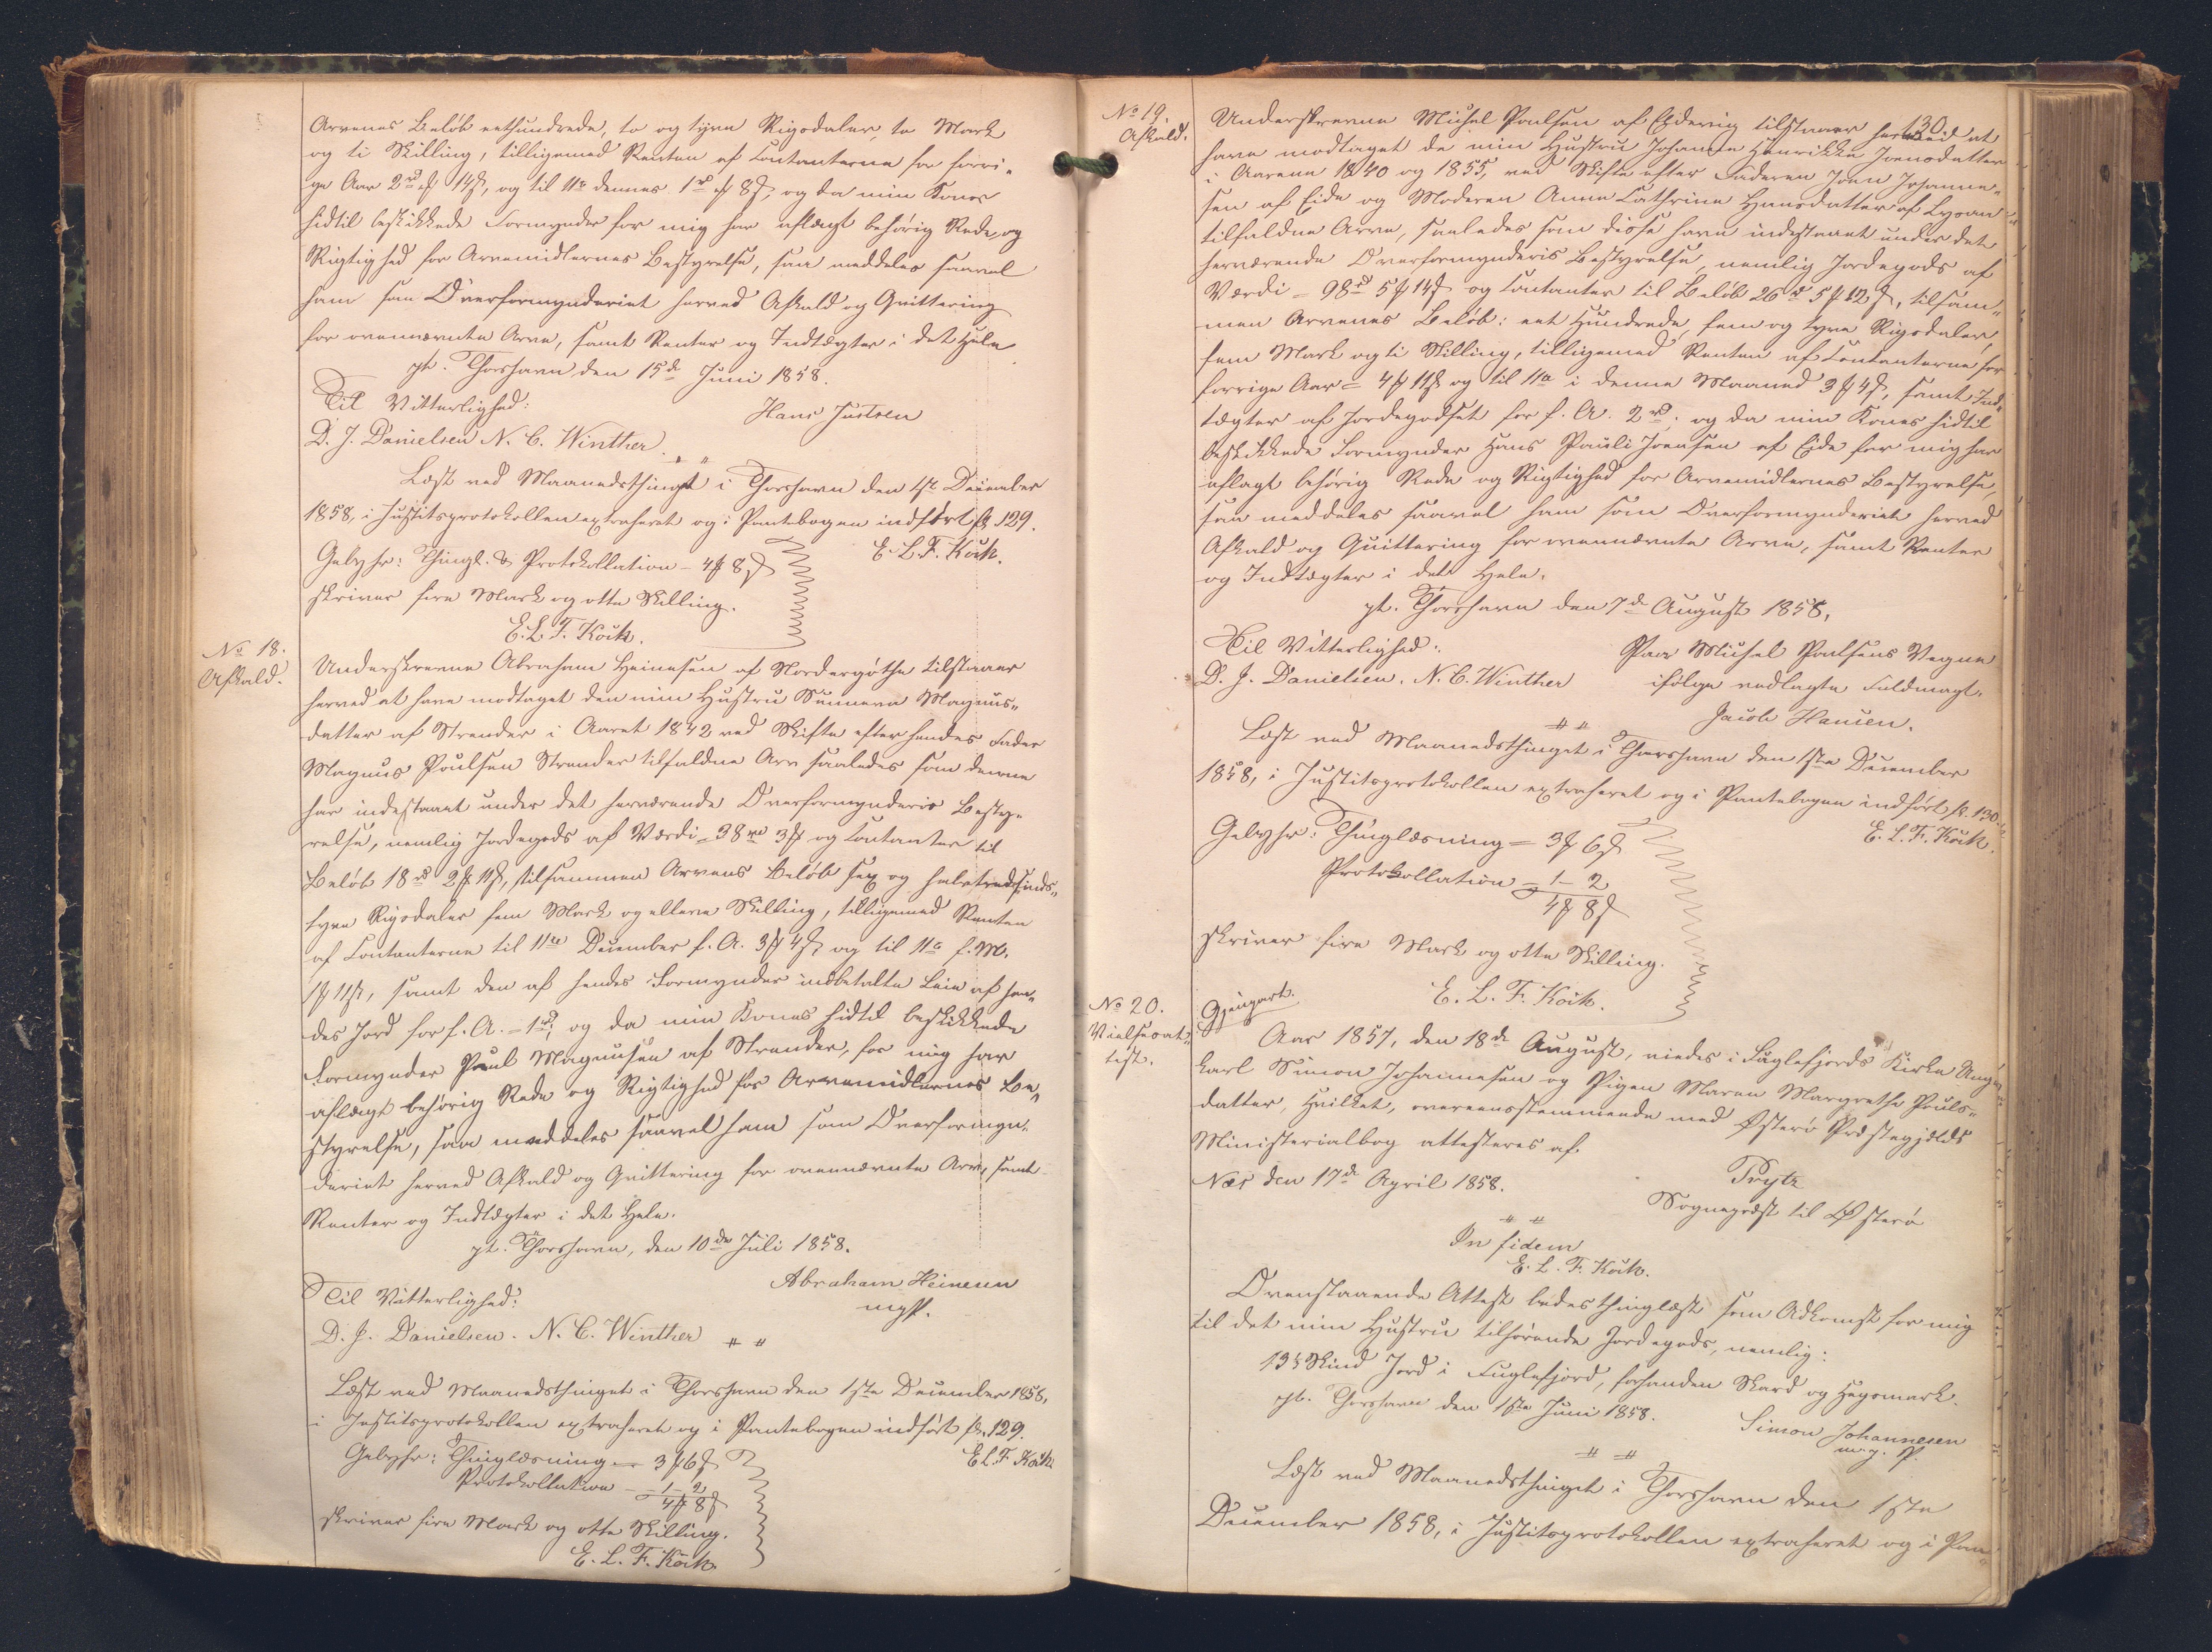 Arvenes Beløb eethundrede, to og tyve Rigsdaler, to Mark
og ti Skilling, tilligemed Renten af Contanterne for forri-
ge Aar 2rd 14ß, og til 11te dennes 1rd 8ß, og da min Kones
hidtil beskikkede Formynder for mig har aflagt behørig Rede og
Rigtighed for Arvemidlernes Bestyrelse, saa meddeles saavel
ham som Overformynderiet herved Afkald og Qvittering
for ovennævnte Arv, samt Renter og Indtægter i det Hele
pt. Thorshavn den 15de Juni 1858.
Til Vitterlighed:
Hans Justsen
D. J. Danielsen N. C. Winther.
Læst ved Maanedsthinget i Thorshavn den 1ste December
1858, i Justitsprotokollen extraheret og i Pantebogen indført fol. 129.
E. L. F. Köck.
Gebyhr: Thingl. & Protokollation - 4 8ß
skriver fire Mark og otte Skilling.
E. L. F. Köck.
No 18.
Afkald.
Underskrevne Abraham Heinesen af Nordergøthe tilstaaer
herved at have modtaget den min Hustru Sunneva Magnus-
datter af Strender i Aaret 1842 ved Skifte efter hendes Fader
Magnus Poulsen Strender tilfaldne Arv saaledes som denne
har indestaaet under det herværende Overformynderis Besty-
relse, nemlig Jordegods af Værdi = 38rd 3 og Contanter til
Beløb 18rd 2 11ß, tilsammen Arvens Beløb sex og halvtredsinds-
tyve Rigsdaler fem Mark og elleve Skilling, tilligemed Renten
af Contanterne til 11te December f. A. 3 4ß og til 11te f. M.
1 11ß, samt den af hendes Formynder indbetalte Leie af hen-
des Jord for f. A. = 1rd; og da min Kones hidtil beskikkede
Formynder Paul Magnussen af Strender, for mig har
aflagt behørig Rede og Rigtighed for Arvemidlernes Be-
styrelse, saa meddeles saavel ham som Overformyn-
deriet herved Afkald og Qvittering for ovennævnte Arv, samt
Renter og Indtægter i det Hele.
pt. Thorshavn, den 10de Juli 1858.
Abraham Heinesen
Til Vitterlighed:
D. J. Danielsen. N. C. Winther
Læst ved Maanedsthinget i Thorshavn den 1ste December 1858,
i Justitsprotokollen extraheret og i Pantebogen indført fol. 129.
E. L. F. Köck
Gebyhr: Thinglæsning = 3 6ß
Protokollation - 1 - 2
4 8ß
skriver fire Mark og otte Skilling.
E. L. F. Köck.
130.
No 19.
Afkald.
Underskrevne Michel Poulsen af Eldevig tilstaaer herved at
have modtaget de min Hustru Johanne Henrikke Joensdatter
i Aarene 1840 og 1855, ved Skifte efter Faderen Joen Johanne-
sen af Eide og Moderen Anne Cathrine Hansdatter af
tilfaldne Arve, saaledes som disse have indestaaet under det
herværende Overformynderis Bestyrelse, nemlig Jordegods af
Værdi = 98rd 5 14ß og Contanter til Beløb 26rd 5 12ß, tilsam-
men Arvenes Beløb: eet Hundrede, fem og tyve Rigsdaler,
fem Mark og ti Skilling, tilligemed Renten af Contanterne for
forrige Aar = 4 11ß og til 11te i denne Maaned 3 4ß, samt Ind-
tægter af Jordegodset for f. A. 2rd; og da min Kones hidtil
beskikkede Formynder Hans Pauli Joensen af Eide for mig har
aflagt behørig Rede og Rigtighed for Arvemidlernes Bestyrelse,
saa meddeles saavel ham som Overformynderiet herved
Afkald og Quittering for ovennævnte Arve, samt Renter
og Indtægter i det Hele.
pt. Thorshavn den 7de August 1858,
Til Vitterlighed:
Paa Michel Poulsens Vegne
D. J. Danielsen. N. C. Winther
ifølge vedlagte Fuldmagt.
Jacob Hansen.
Læst ved Maanedsthinget i Thorshavn den 1ste December
1858, i Justitsprotokollen extraheret og i Pantebogen indført fol. 130.
E. L. F. Köck.
Gebyhr: Thinglæsning = 3 6ß
Protokollation - 1 - 2
4 8ß
skriver fire Mark og otte Skilling.
E. L. F. Köck.
No 20.
Vielsesat-
test.
Gjenpart.
Aar 1857, den 18de August, viedes i Fuglefjords Kirke Ung-
karl Simon Johannesen og Pigen Maren Margrethe Pouls-
datter, hvilket, overeensstemmende med Østerø Præstegjelds
Ministerialbog attesteres af
Næs den 17de April 1858.
Prytz
Sognepræst til Østerø
In fidem
E. L. F. Köck.
Ovenstaaende Attest bedes thinglæst som Adkomst for mig
til det min Hustru tilhørende Jordegods, nemlig:
13½ Skind Jord i Fuglefjord, forhenden Skard og Hegsmark.
pt. Thorshavn den 1ste Juni 1858.
Simon Johannesen
m. f. P.
Læst ved Maanedsthinget i Thorshavn den 1ste
December 1858, i Justitsprotokollen extraheret og i Pan-